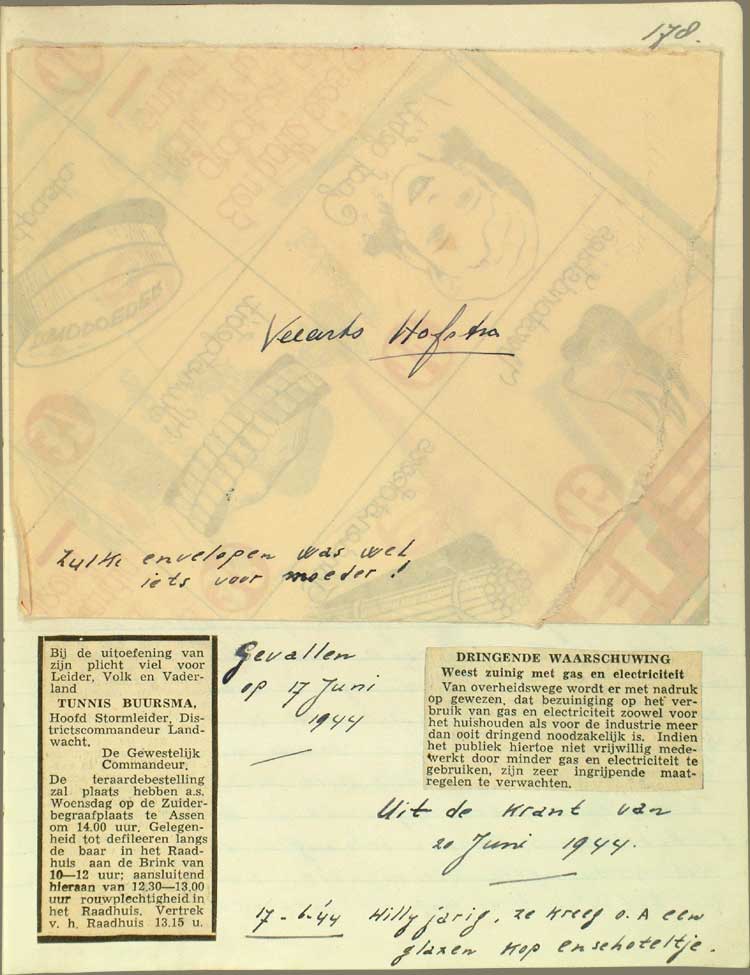 178.
Hofstra
Zulke envelopen was wel
iets voor moeder!
Bij de uitoefening van
zijn plicht viel voor
Leider, Volk en Vader-
land
TUNNIS BUURSMA,
Hoofd Stormleider, Dis-
trictscommandeur Land-
wacht.
De Gewestelijk
Commandeur.
De teraardebestelling
zal plaats hebben a.s.
Woensdag op de Zuider-
begraafplaats te Assen
om 14.00 uur. Gelegen-
heid tot defileeren langs
de baar in het Raad-
huis aan de Brink van
10—12 uur; aansluitend
hieraan van 12.30—13.00
uur rouwplechtigheid in
het Raadhuis. Vertrek
v. h. Raadhuis 13.15 u.
Gevallen
op 17 Juni
1944
DRINGENDE WAARSCHUWING
Weest zuinig met gas en electriciteit
Van overheidswege wordt er met nadruk
op gewezen, dat bezuiniging op het ver-
bruik van gas en electriciteit zoowel voor
het huishouden als voor de industrie meer
dan ooit dringend noodzakelijk is. Indien
het publiek hiertoe niet vrijwillig mede-
werkt door minder gas en electriciteit te
gebruiken, zijn zeer ingrijpende maat-
regelen te verwachten.
Uit de krant van
20 Juni 1944.
17-6-'44 Willy jarig, ze kreeg o.A een
glazen kop enschoteltje.